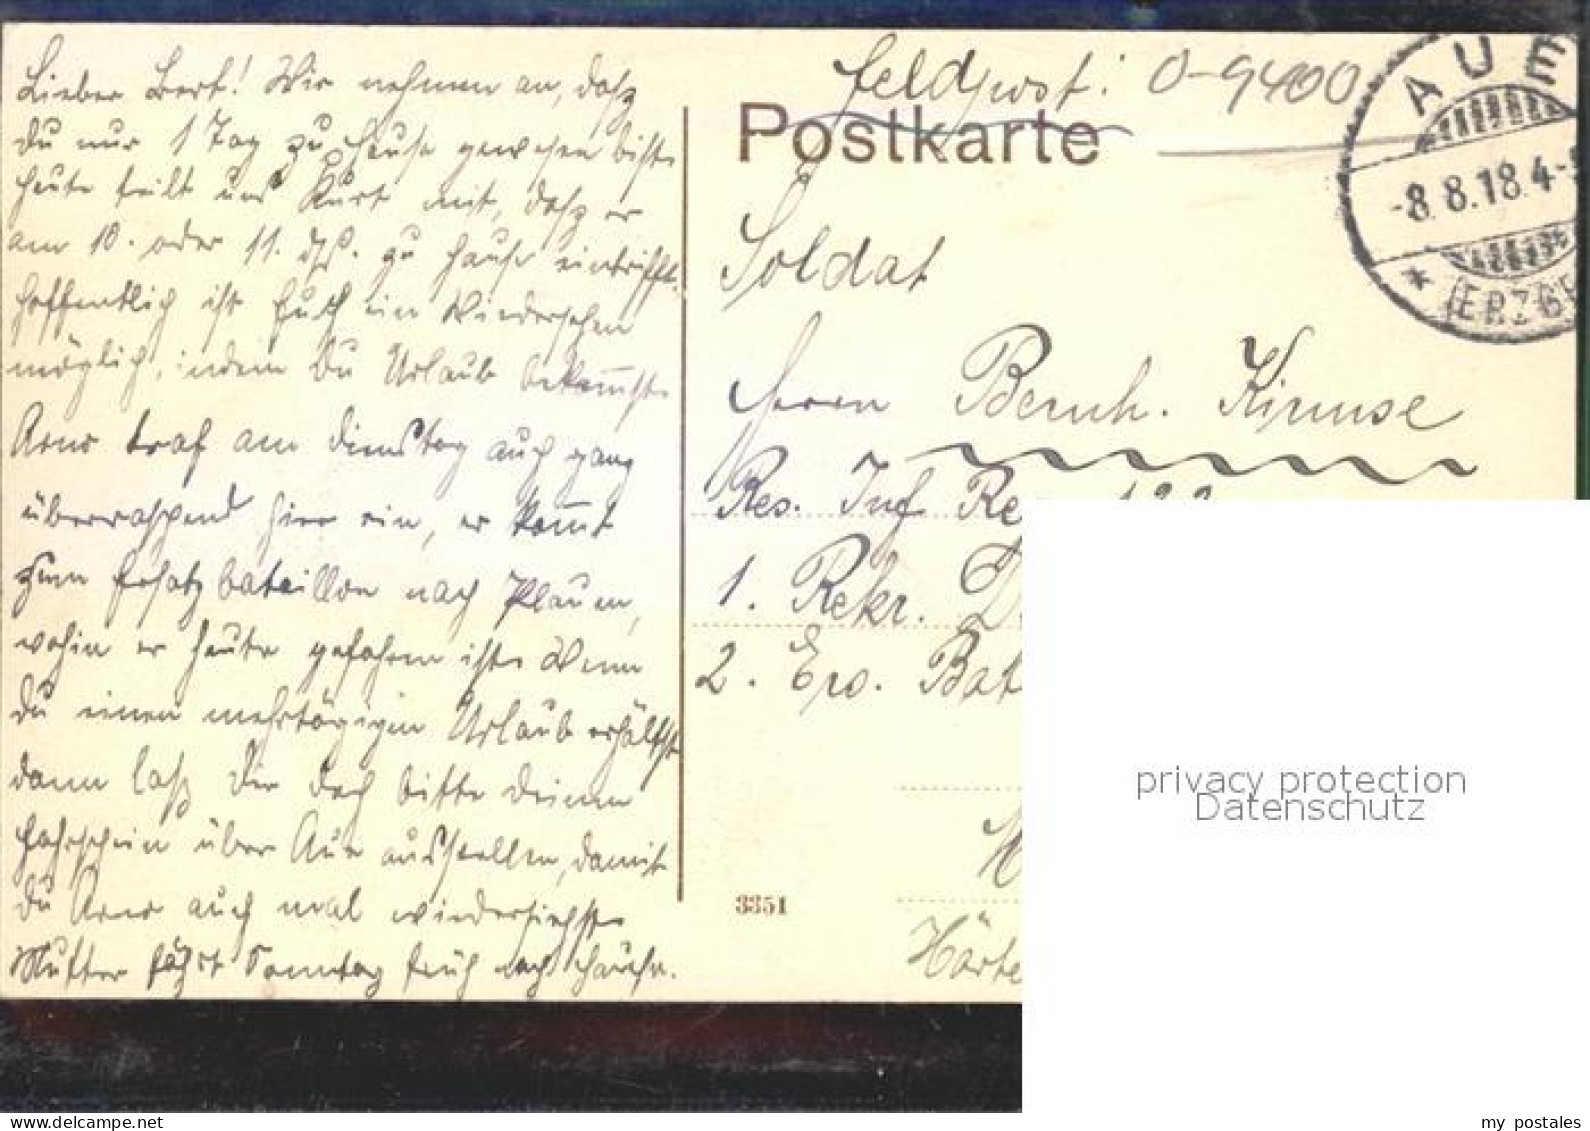 Lieber Bert! Wir nehmen an, daß
Du nur 1 Tag zu Hause gewesen bist.
Heute teilt uns Kurt mit, daß er
am 10. oder 11. ds. zu Hause eintrifft.
Hoffentlich ist Euch ein Wiedersehen
möglich, indem Du Urlaub bekom̅st.
Arno traf am Dienstag auch ganz
überraschend hier ein, er kom̅t
zum Ersatzbataillon nach Plauen,
wohin er heute gefahren ist. Wenn
Du einen mehrtägigen Urlaub erhältst
dann laß Dir doch bitte Deinen
Fahrschein über Aue ausstellen, damit
Du Arno auch mal wiedersiehst.
Mutter fährt Sonntag früh nach Hause.
Feldpost: O-9400
Postkarte
Soldat
Herrn Bernh. Kirmse
Res. Inf Re
1. Rekr. D
2. Ers. Bat
3351
Härte
AUE
-8.8.18.4-5
* (ERZGEB
privacy protection
Datenschutz
my postales